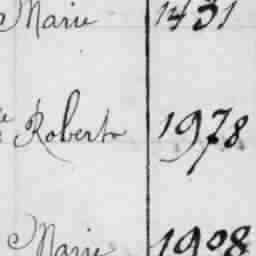 Marie 1431
e Roberto 1978
Marie 1908